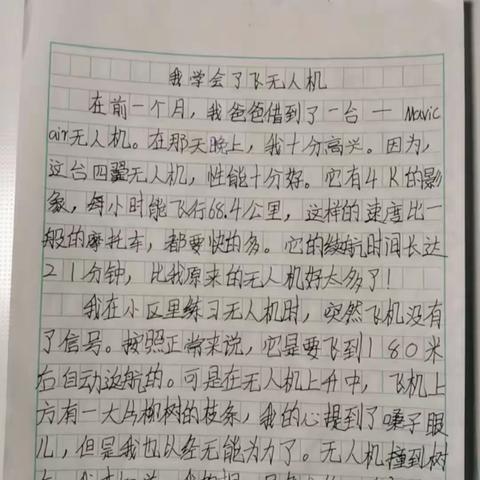 我学会了飞无人机
在前一个月，我爸爸借到了一台一Mavic
air无人机。在那天晚上，我十分高兴。因为，
这台四翼无人机，性能十分好。它有4K的影
象，每小时能飞行68.4公里，这样的速度比一
般的摩托车，都要快的多。它的续航时间长达
21分钟，比我原来的无人机好太多了！
我在小区里练习无人机时，突然飞机没有
了信号。按照正常来说，它是要飞到180米
右自动返航的。可是在无人机上升中，飞机上
方有一大片柳树的枝条，我的心提到了嗓子眼
儿，但是我也已经无能为力了。无人机撞到树